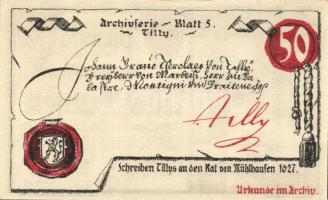 Archivserie - Blatt 5.
Tilly.
50
Johann Graue Tserclaes Von Tilly,
Freyherr von Marbeis, Herr zu Ba
la stre, Montigni und Breitenegg
Tilly
Schreiben Tillys an den Rat von Mühlhausen 1627.
Urkunde im Archiv.